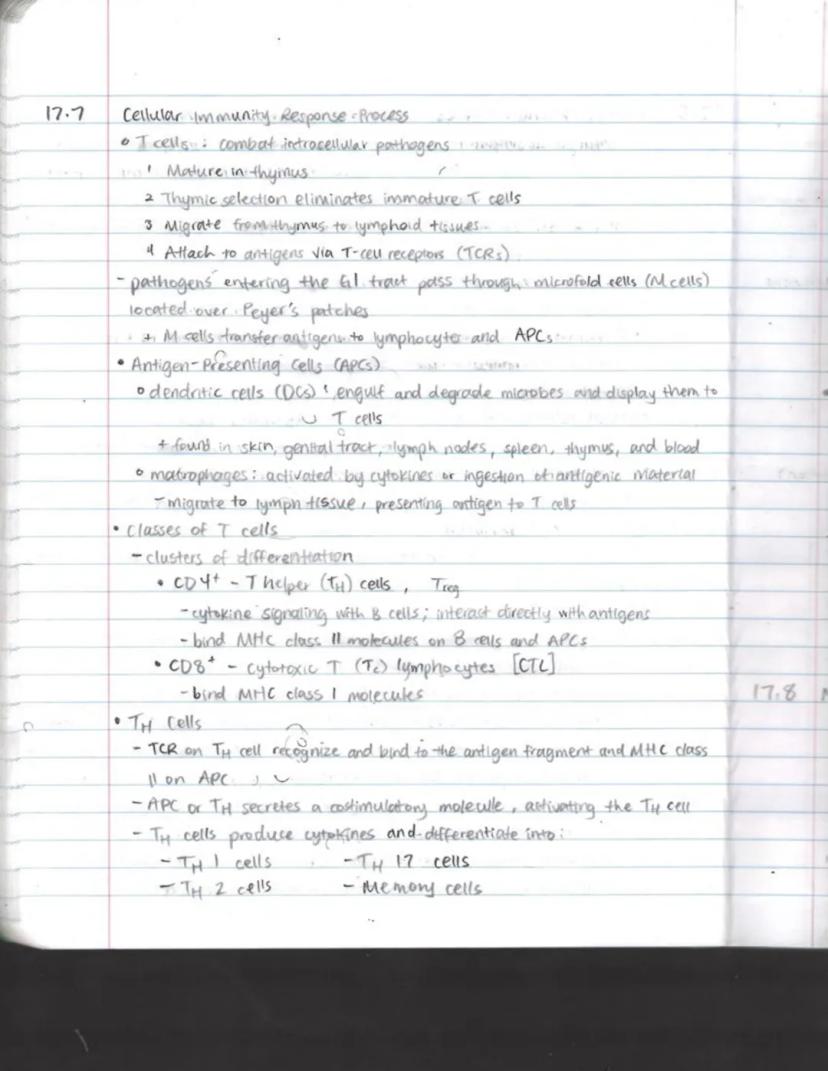 17.7 Cellular Immunity Response Process
o T cells : combat intracellular pathogens
1 Mature in thymus
2 Thymic selection eliminates immature T cells
3 Migrate from thymus to lymphoid tissues
4 Attach to antigens via T-cell receptors (TCRs)
- pathogens entering the GI tract pass through microfold cells (M cells)
located over Peyer's patches
+ M cells transfer antigens to lymphocytes and APCs
• Antigen-Presenting Cells (APCs)
o dendritic cells (DCs) : engulf and degrade microbes and display them to
T cells
+ found in skin, genital tract, lymph nodes, spleen, thymus, and blood
o macrophages : activated by cytokines or ingestion of antigenic material
- migrate to lymph tissue, presenting antigen to T cells
• Classes of T cells
- clusters of differentiation
• CD4+ - T helper (TH) cells , Treg
- cytokine signaling with B cells; interact directly with antigens
- bind MHC class II molecules on B cells and APCs
• CD8+ - cytotoxic T (Tc) lymphocytes [CTL]
- bind MHC class I molecules
17.8
• TH Cells
- TCR on TH cell recognize and bind to the antigen fragment and MHC class
II on APC
- APC or TH secretes a costimulatory molecule, activating the TH cell
- TH cells produce cytokines and differentiate into:
- TH 1 cells - TH 17 cells
- TH 2 cells - Memory cells